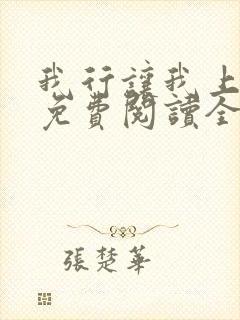 我行讓我上
免費閱讀全
張楚華